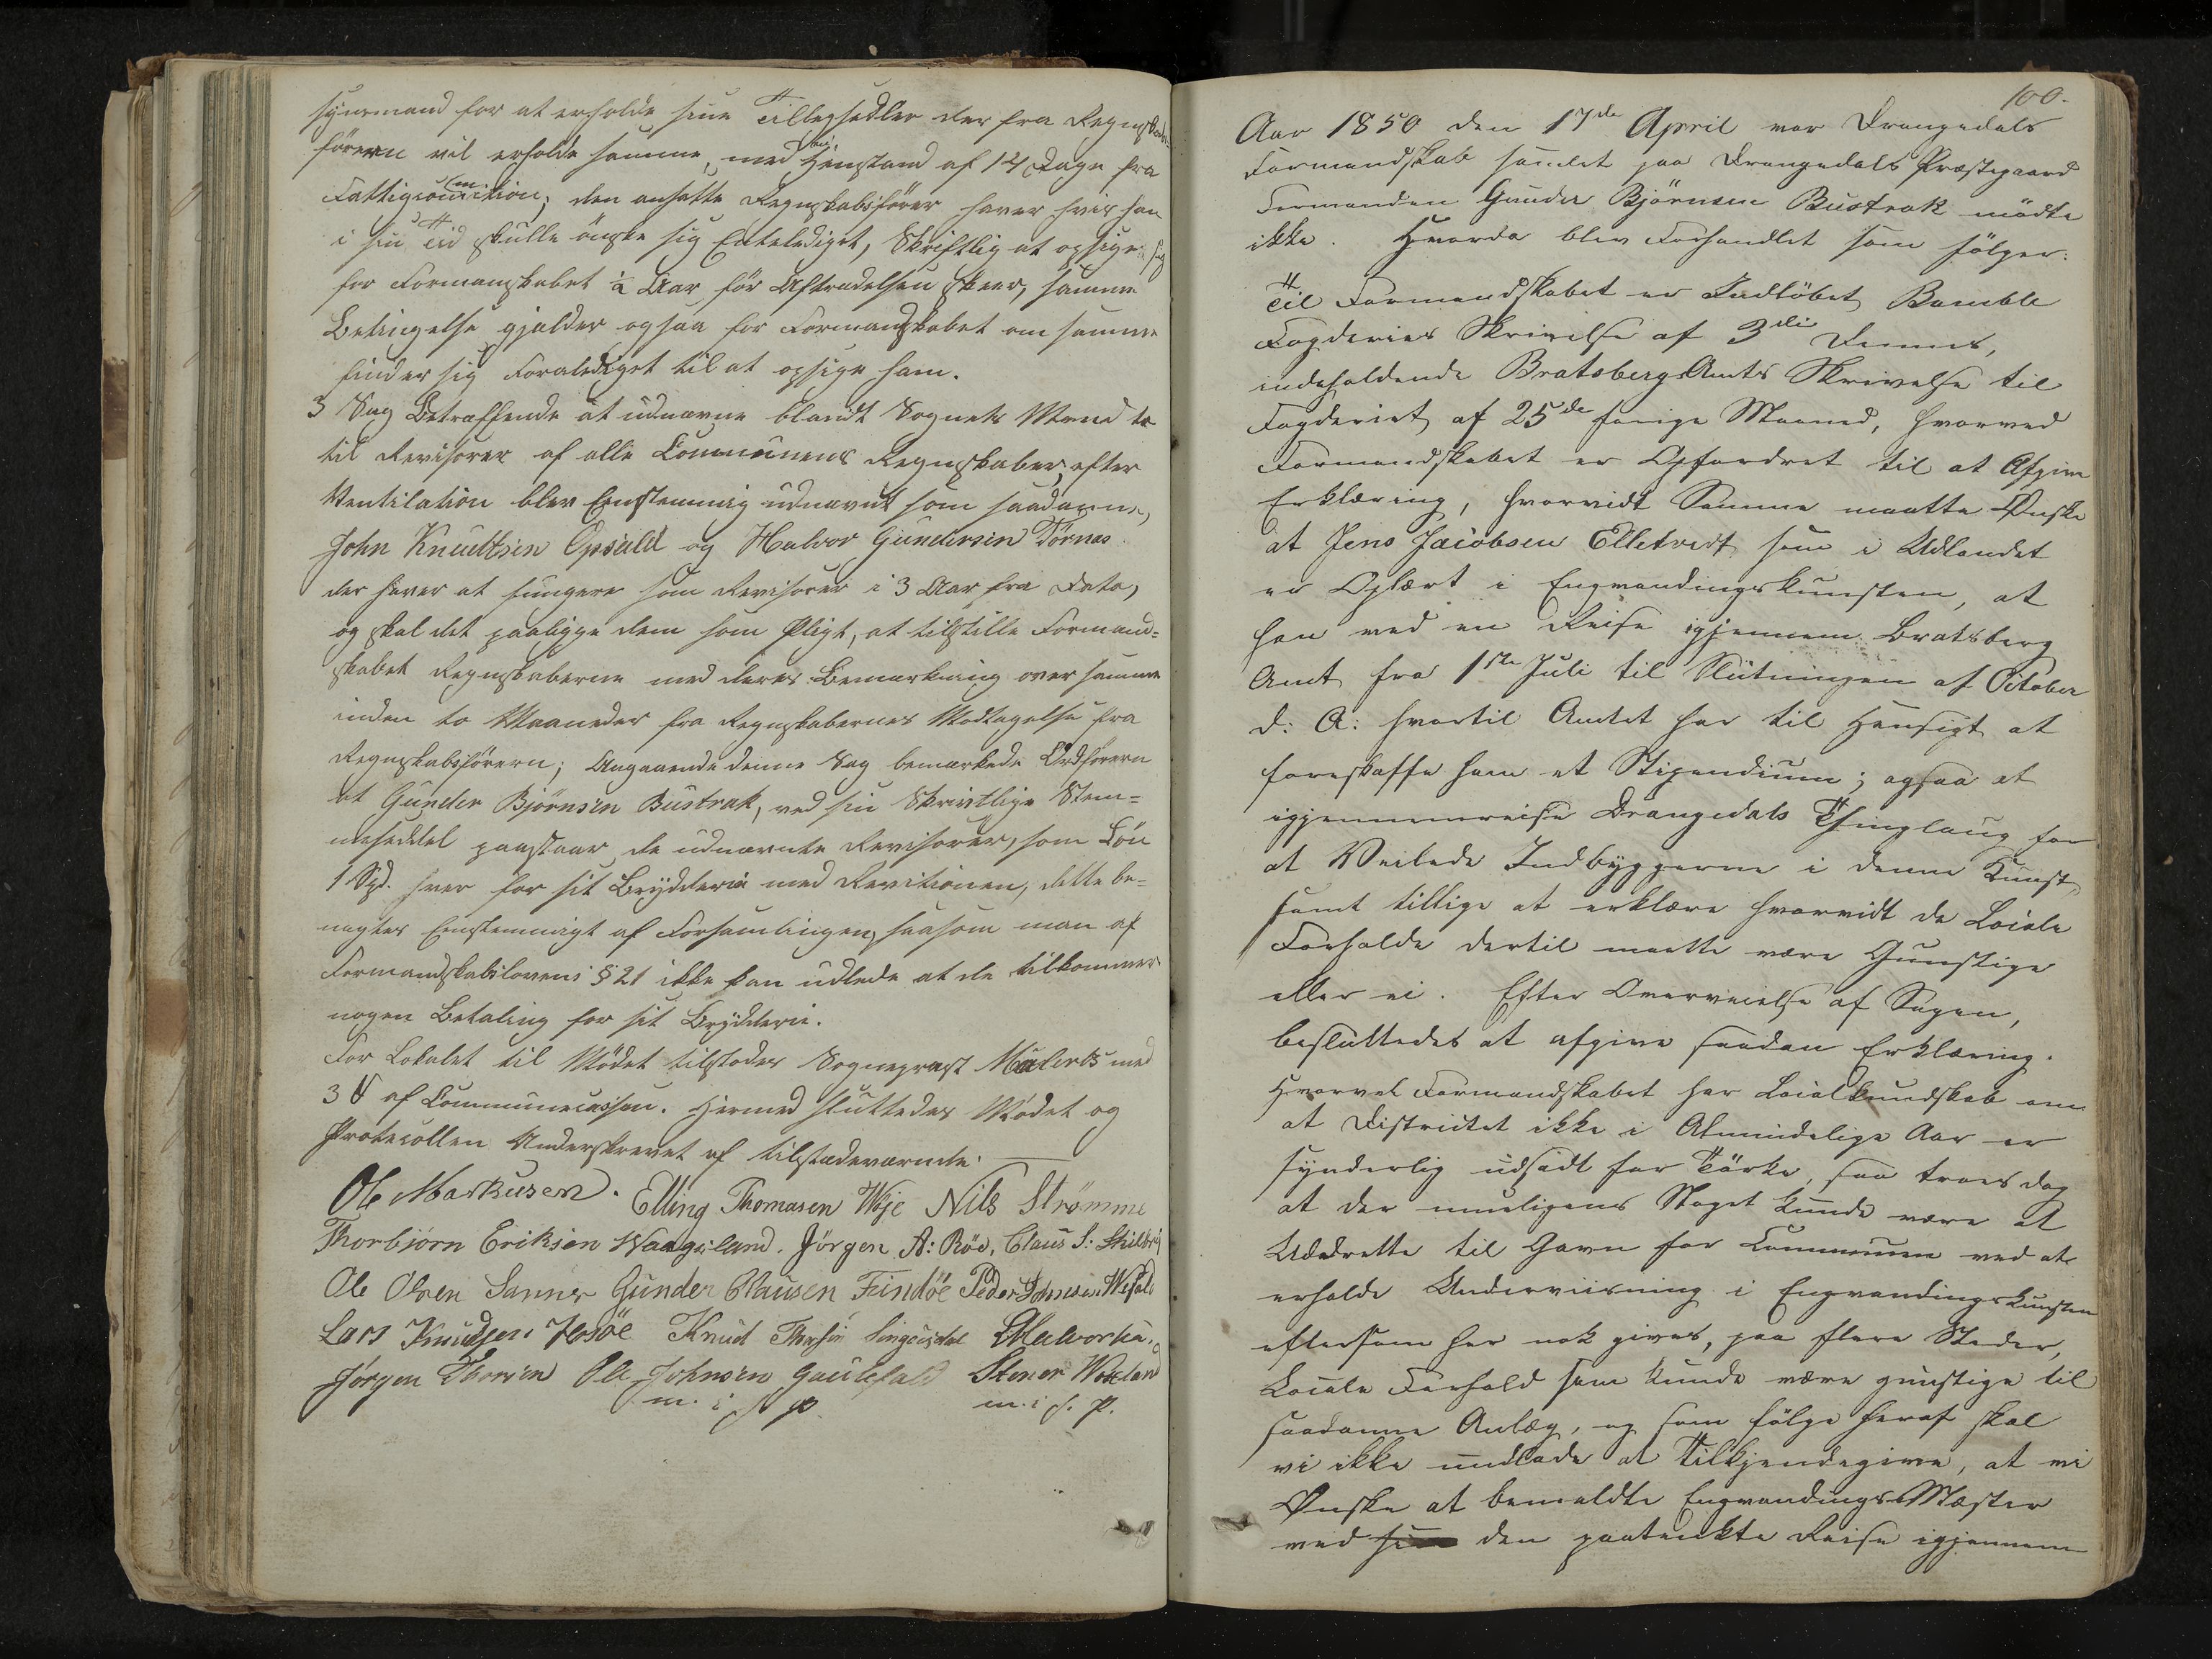 synsmand for at erholde sine Tillægsedler der fra Regnskabs-
føreren vil erholde samme, med Henstand af 14 Dage fra
Fattigcommition; den ansatte Regnskabsfører haver hvis han
i sin Tid skulle ønske sig Entelediget, Skriftlig at opsige sig
for Formanskabet ½ Aar før Aftrædelsen skeer, samme
Betingelse gjælder ogsaa for Formandskabet om samme
finder sig Foralediget til at opsige ham.
3 Sag Betræffende at udnævne blandt Sognets Mænd to
til Revisorer af alle Communens Regnskaber, efter
Ventilation blev Eenstemmig udnævnt som saadanne,
John Knudtsen Opsald og Halvor Gundersen Tørnes
der haver at fungere som Revisorer i 3 Aar fra Dato,
og skal det paaligge dem som Pligt, at tilstille Formand-
skabet Regnskaberne med deres Bemærkning over samme
inden to Maaneder fra Regnskabernes Modtagelse fra
Regnskabsføreren; Angaaende denne Sag bemærkede Ordføreren
at Gunder Bjørnsen Bustrak, ved sin Skrivtlige Stem-
meseddel paastaar de udnævnte Revisorer, som Løn
1 Spd. hver for sit Brydderie med Revitionen, dette be-
nægtes Eenstemmigt af Forsamlingen, saasom man af
Formandskabslovens § 21 ikke kan udlede at de tilkommer
nogen Betaling for sit Brydderie.
For Lokalet til Mødet tilstodes Sogneprest Münderts med
3 af Communecassen. Hermed sluttedes Mødet og
Protocollen Underskrevet af tilstædeværende.
Ole Markusen. Elling Thomasen Woje Nils Strømme
Thorbjørn Eriksen Waagsland. Jørgen A: Röe, Claus S:
Ole Olsen Sannes Gunder Clausen Feindöe Peder Johnsen
Lars Knudsen Hosøe Knud
Jørgen Thorsen Ole Johnsen Gautefald Stener
m. i f. p. m. i f. p.
100.
Aar 1850 den 17de April var Drangedals
Formandskab samlet paa Drangedals Præstegaard
Formanden Gunder Bjørnsen Bustrak mødte
ikke. Hvorda blev Forhandlet som følger:
Til Formandskabet er Indløbet Bamble
Fogderies Skrivelse af 3die Dennes,
indeholdende Bratsberg Amts Skrivelse til
Fogderiet af 25de forige Maaned, hvorved
Formandskabet er Opfordret til at Afgive
Erklæring, hvorvidt Samme maatte Ønske
at Jens Jacobsen Elletvedt som i Udlandet
er Oplært i Engvandingskunsten, at
han ved en Reise igjennem Bratsberg
Amt fra 1ste Juli til Slutningen af October
d: A: hvortil Amtet har til Hensigt at
foreskaffe ham et Stipendium; ogsaa at
igjennemreise Drangedals Thinglaug for
at Veilede Indbyggerne i denne Kunst,
samt tillige at erklære hvorvidt de Locale
Forholde dertil maatte være Gunstige
eller ei. Efter Overveielse af Sagen,
besluttedes at afgive saadan Erklæring.
Hvorvel Formandskabet har Localkundskab om
at Districtet ikke i Almindelige Aar er
synderlig udsadt for Törke, saa troes dog
at der mueligens Noget kunde være at
Udrette til Gavn for Communen ved at
erholde Underviisning i Engvandingskunsten
eftersom her nok gives, paa flere Steder,
Locale Forhold som kunde være gunstige til
saadanne Anlæg, og som følge heraf skal
vi ikke undlade at Tilkjendegive, at vi
Ønske at bemeldte EngvandingsMester
ved den paatenkte Reise igjennem